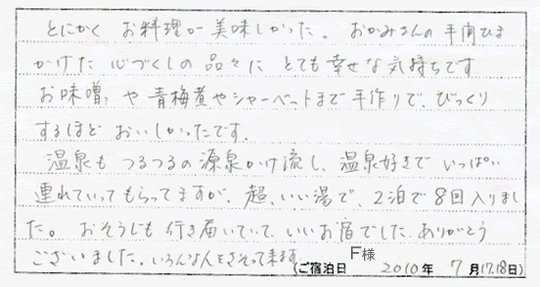 とにかく お料理が美味しかった。 おかみさんの手間ひま
かけた 心づくしの品々に とても幸せな気持ちです
お味噌、や 青梅煮やシャーベットまで手作りで、びっくり
するほど おいしかったです.
温泉も つるつるの源泉かけ流し、温泉好きで いっぱい
連れていってもらってますが、超、いい湯で、2泊で8回入りまし
た。 おそうじも 行き届いていて、いいお宿でした. ありがとう
ございました。いろんな人をさそって来ます. F様
(ご宿泊日 2010年 7月17.18日)